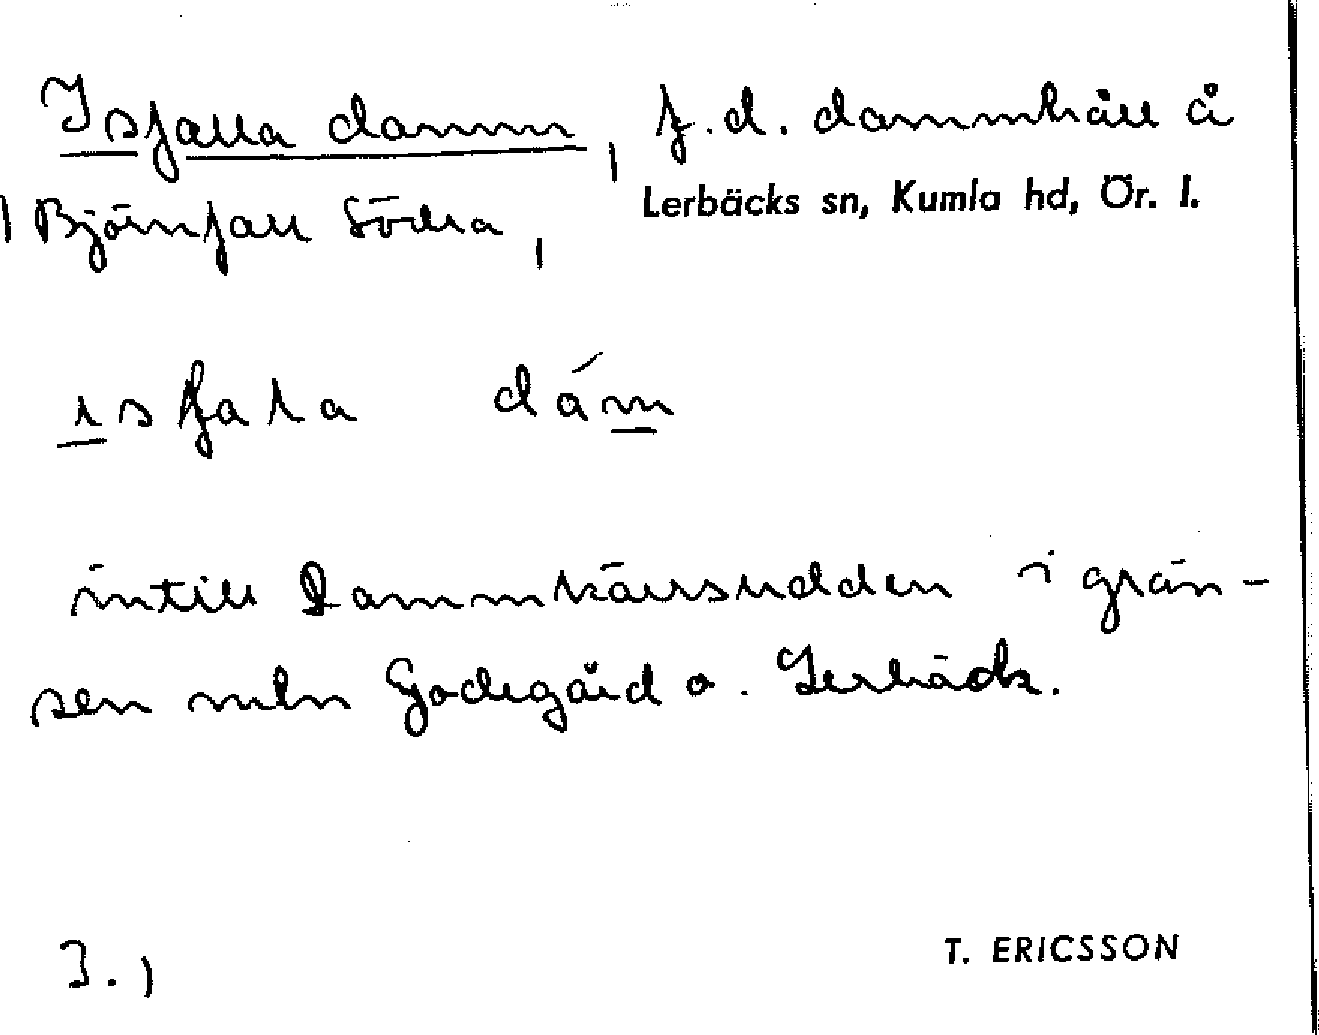 Isfalla damm, f.d. dammhåll å
Björnfall Södra, Lerbäcks sn, Kumla hd, Ör. l.
ısfala dám
intill Dammkärrsudden i grän-
sen mln Godegård o. Lerbäck.
T. ERICSSON